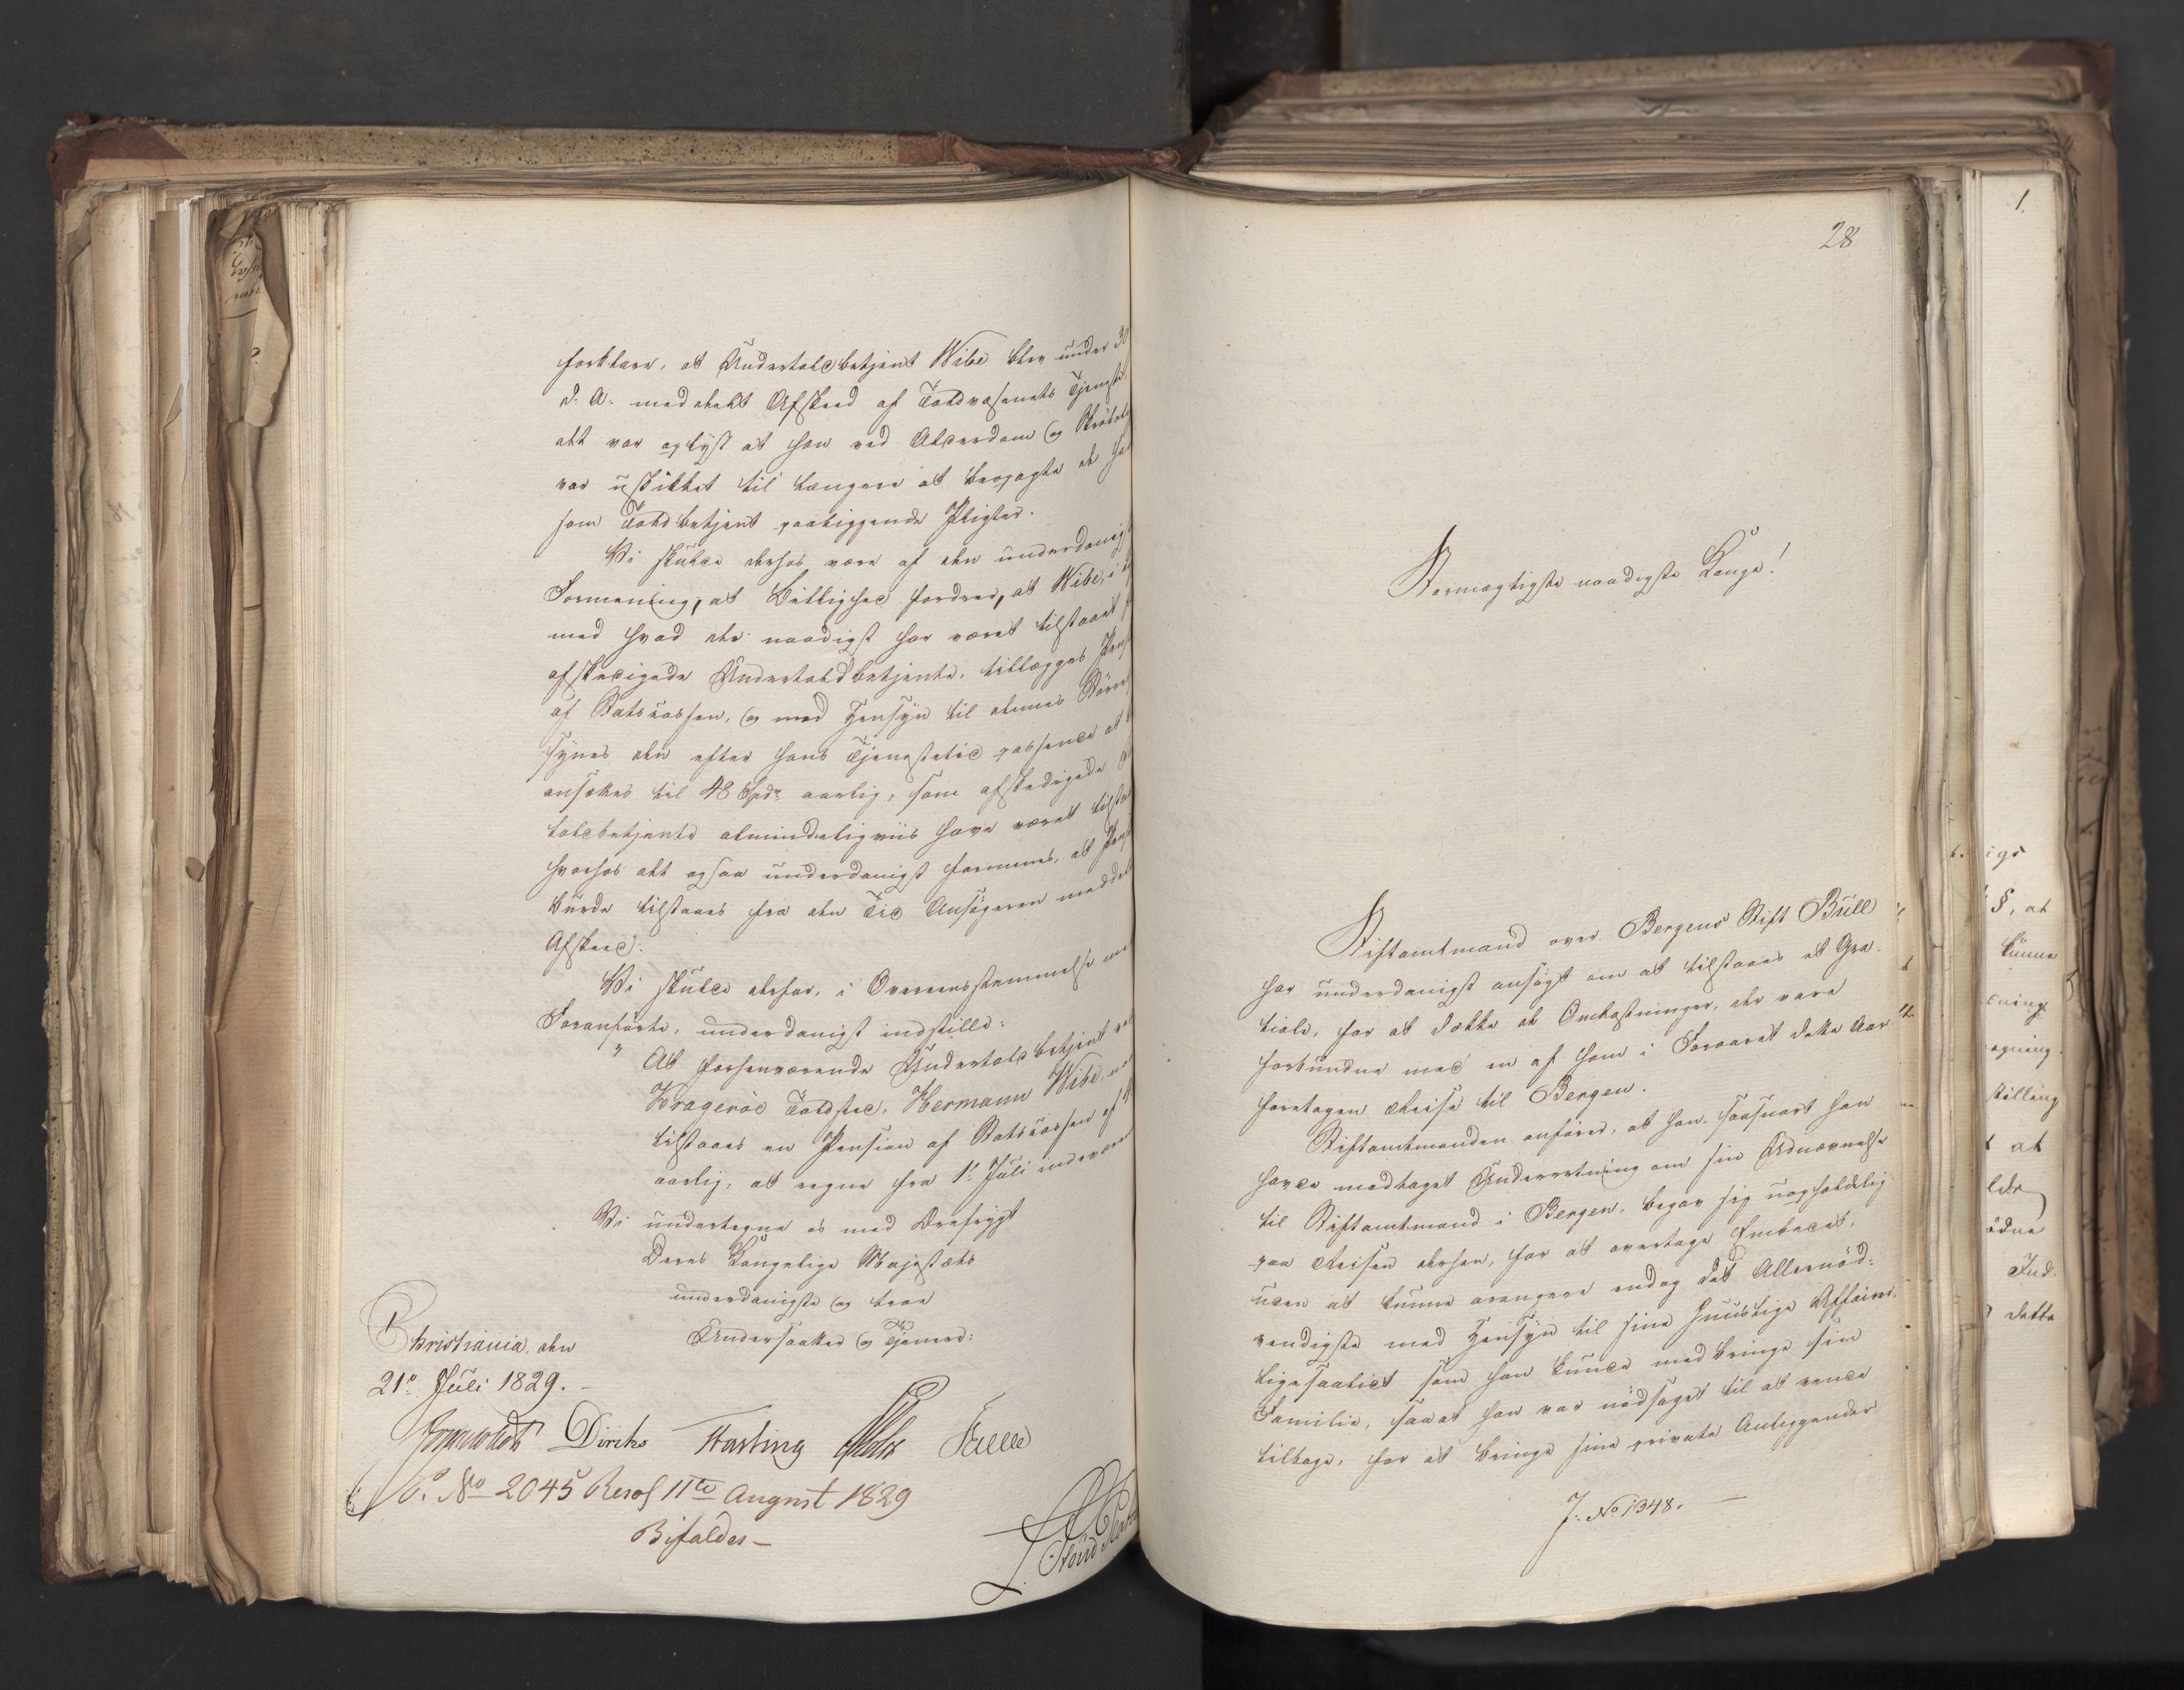 forklare, at Undertoldbetjent Wibe blev under 30
d. A. meddeelt Afskeed af Toldvæsenets Tjeneste
det var oplyst at han ved Alderdom og
var uskikket til længere at besørgede de ham
som Toldbetjent paaliggende Pligter.
Vi skulde derhos være af den underdanigst
Formening, at Billighed fordrer, at Wibe, i
med hvad der naadigst har været tilstaaet
afskedigede Undertoldbetjente, tillægges Pens
af Statscassen, og med Hensyn til dennes Større
synes den efter hans Tjenestetid passende at
ansættes til 48 Spdr aarlig, som afskedigede
toldbetjente almindeligviis have været tilsta
hvorhos det ogsaa underdanigst formenes, at Pens
burde tilstaaes fra den Tid Ansøgeren meddel
Afskeed.
Vi skulde derfor, i Overeensstemmelse med
Foranførte, underdanigst indstille:
" At forhenværende Undertoldbetjent ved
Kragerøe Toldsted, Hermann Wibe,
tilstaaes en Pension af Statscassen af 4
aarlig, at regne fra 1ste Juli indevær
Vi undertegne os med Ærefrygt
Deres Kongelige Majestæts
underdanigste og troe
Undersaatter og Tjenere:
Christiania, den
21de Juli 1829.
Diriks Fasting Falbe
P. No 2045 Resol 11te August 1829
Bifaldes
28
Stormægtigste naadigste Konge!
Stiftamtmand over Bergens Stift Bull
har underdanigst ansøgt om at tilstaaes et Gra-
tiale, for at dække de Omkostninger, der vare
forbundne med en af ham i Foraaret dette Aar
foretagen Reise til Bergen.
Stiftamtmanden anfører, at han, saasnart han
havde modtaget Underretning om sin Udnævnelse
til Stiftamtmand i Bergen, begav sig uopholdelig
paa Reisen derhen, for at overtage Embedet,
uden at kunne arangere endog det Allernød-
vendigste med Hensyn til sine huuslige Affairer,
ligesaalidt som han kunde medbringe sin
Familie, saa at han var nødsaget til at vende
tilbage, for at bringe sine private Anliggender
J: No 1348.
1.
§, at
kunne
sning
egning
stilling
at
ödne
Ind-
dette